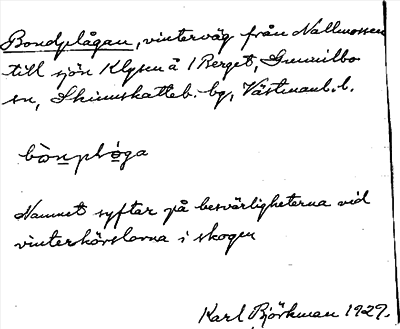 Bondplågan, vinterväg från Nallmossen
till sjön Klysen å 1 Berget, Gunnilbo
sn, Skinnskatteb. bg, Västmanl. l.
bònplóga
Namnet syftar på besvärligheterna vid
vinterkörslorna i skogen
Karl Björkman 1929.